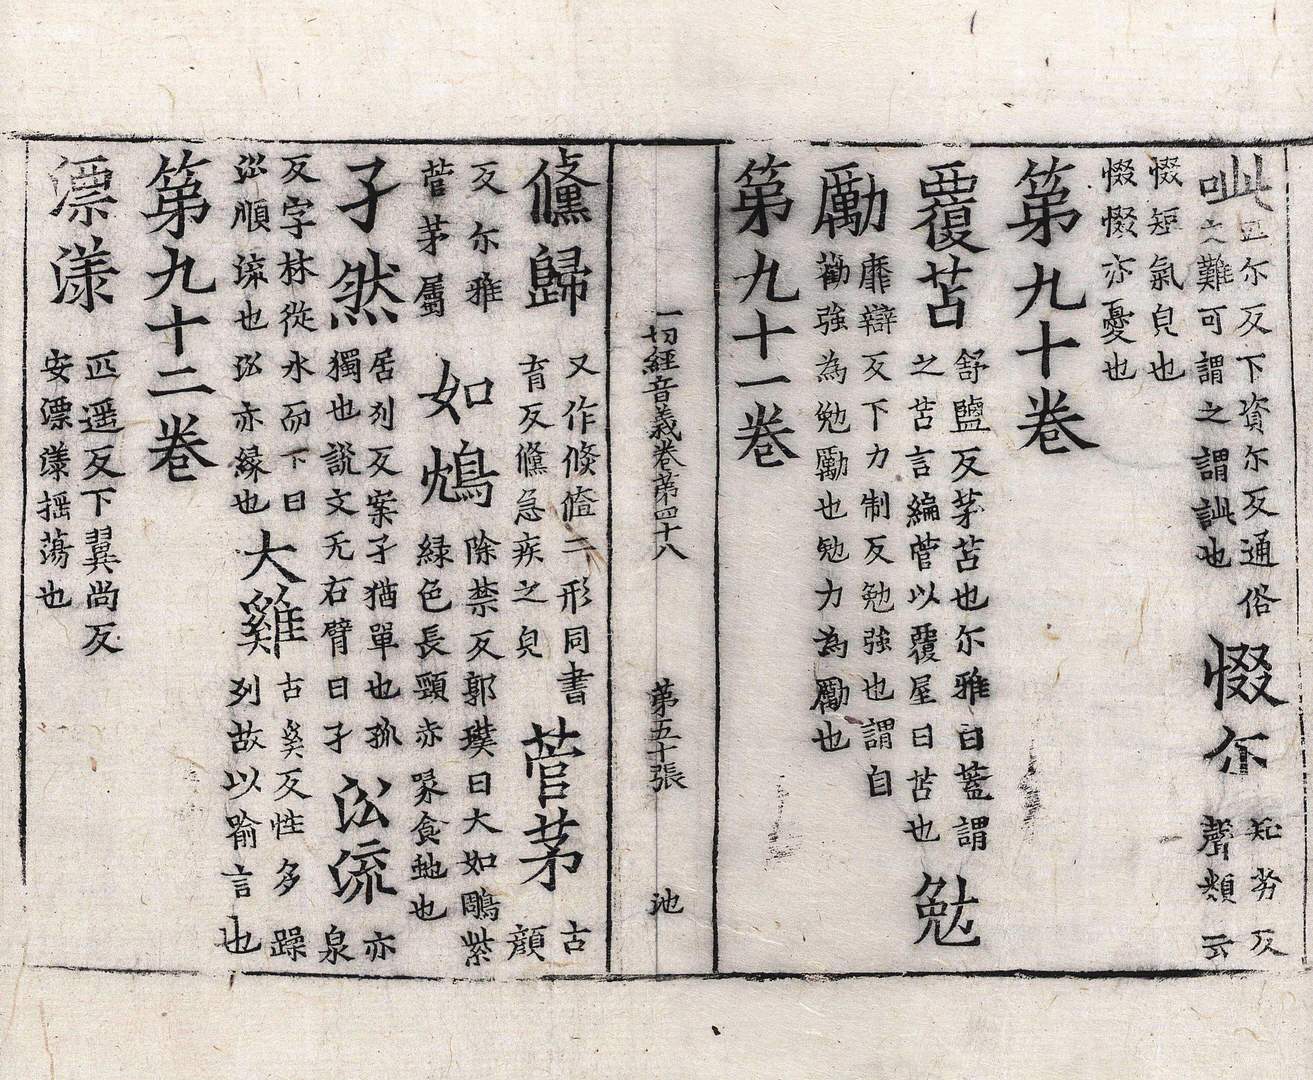 呰匹尔反下資尔反通俗之難可謂之謂訿也惙尔知劣反聲類云
惙短氣皃也惙惙亦憂也
第九十卷
覆苫舒鹽反茅苫也尔雅曰蓋謂之苫言編菅以覆屋曰苫也勉
勵靡辯反下力制反勉強也謂自勸強為勉勵也勉力為勵也
第九十一卷
一切經音義卷第四十八 第五十張 池
儵歸又作倏偹二形同書育反儵急疾之皃菅茅古顏
反尔雅菅茅屬如鴆除禁反郭璞曰大如鵰紫緑色長頸赤喙食虵也
孑然居列反案孑猶單也孤獨也説文无右臂曰孑㳂流亦泉
反字林從水而下曰㳂順流也㳂亦緣也大雞古奚反性多躁列故以喻言也
第九十二卷
漂漾匹遥反下翼尚反安漂漾揺蕩也